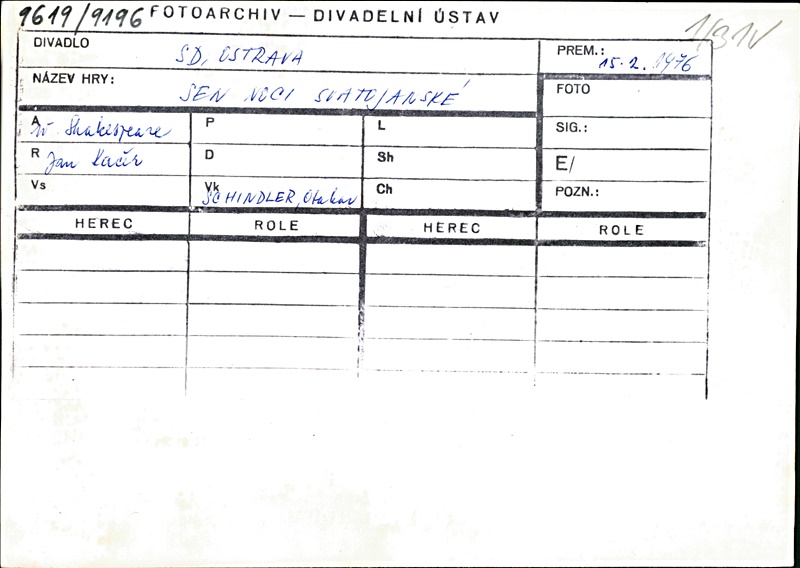 9619/9196 FOTOARCHIV — DIVADELNÍ ÚSTAV
DIVADLO SD, OSTRAVA PREM.: 15.2.1976
NÁZEV HRY: SEN NOCI SVATOJANSKÉ FOTO
A W Shakespeare P L SIG.:
R Jan Kačer D Sh E/
Vs Vk SCHINDLER, Otakar Ch POZN.:
HEREC ROLE HEREC ROLE